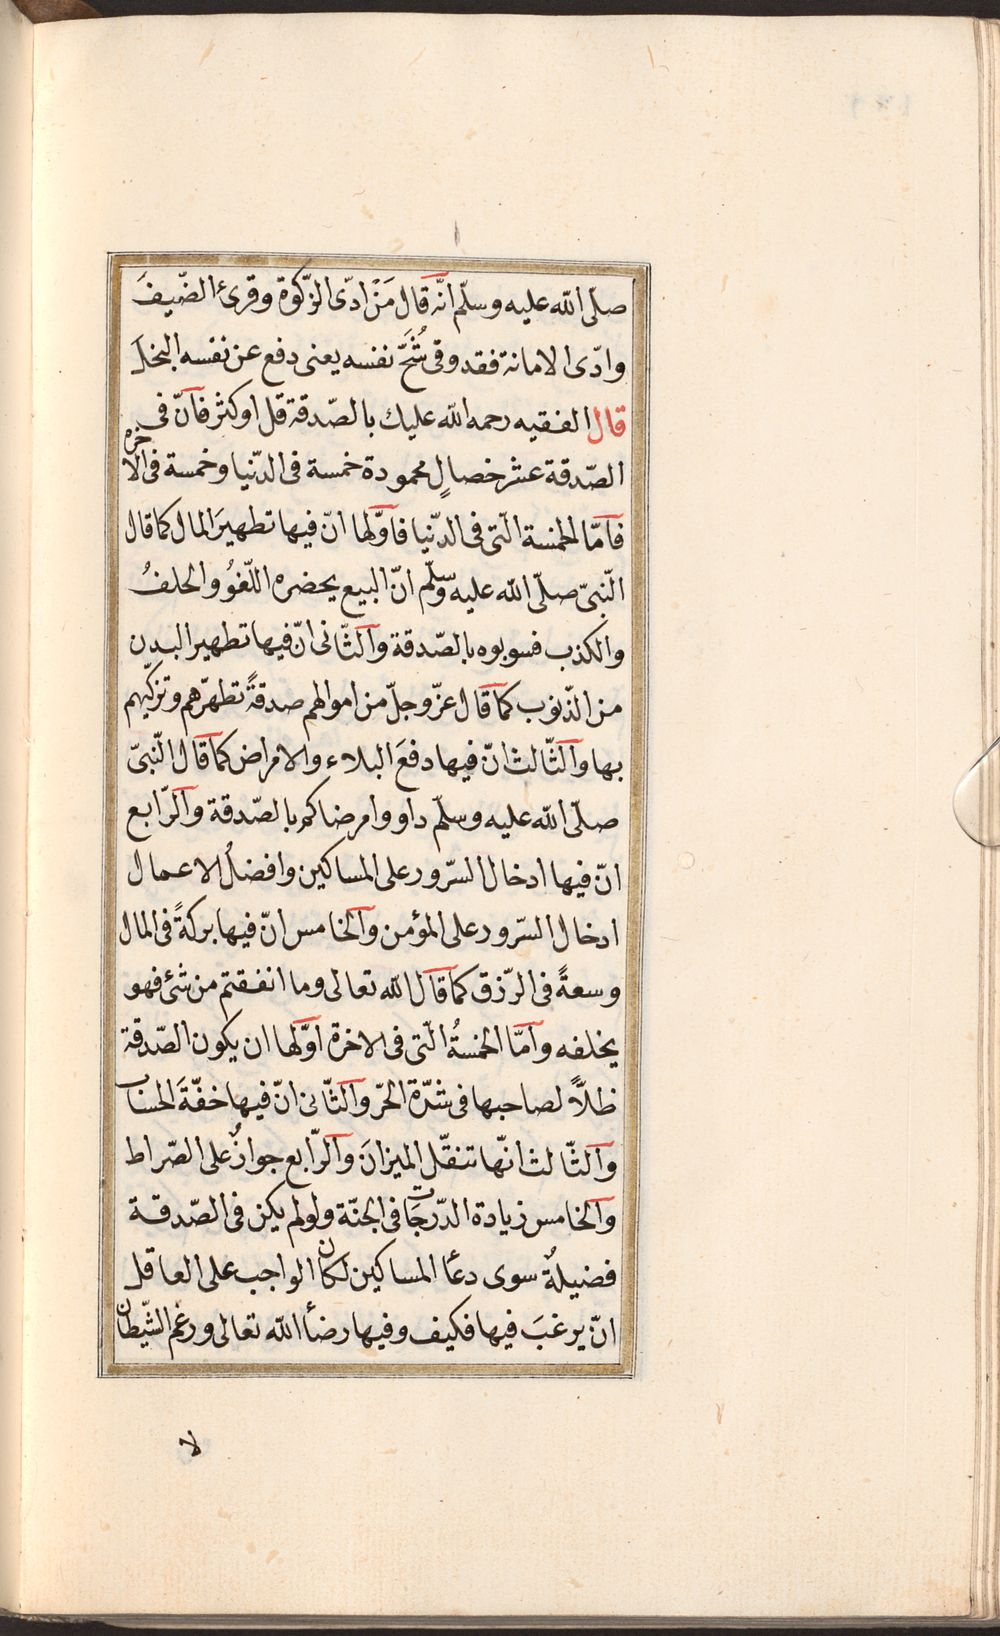 صلّى الله عليه وسلّم انّه قال مَنْ ادّى الزّكوة وقرئ الضّيفَ
وادّى الامانة فقد وقى شُحَّ نفسه يعنى دفع عن نفسه البخل
قال الفقيه رحمه الله عليك بالصّدقة قل او كثر فانّ فى
الصّدقة عشر خصالٍ محمودة خمسة فى الدّنيا وخمسة فى الاخره
فآمّا الخمسة الّتى فى الدّنيا فآوّلها انّ فيها تطهيرَ المال كما قال
النّبىّ صلّى الله عليه وسلّم انّ البيع يحضره اللّغوُ والحلفُ
والكذب فسوبوه بالصّدقة وآلثّانى انّ فيها تطهير البدن
من الذّنوب كما قال عزّ وجلّ من اموالهم صدقةً تطهّرهم وتزكّيهم
بها وآلثّالث انّ فيها دفعَ البلاء والامراض كما قال النّبىّ
صلّى الله عليه وسلّم داووا مرضاكم بالصّدقة وآلرّابع
انّ فيها ادخال السّرور على المساكين وافضلُ الاعمال
ادخال السّرور على المؤمن وآلخامس انّ فيها بركةً فى المال
وسعةً فى الرّزق كما قال الله تعالى وما انفقتم من شئ فهو
يخلفه وآمّا الخمسةُ الّتى فى الاخرة آوّلها ان يكون الصّدقة
ظلاًّ لصاحبها فى شدّة الحرّ وآلثّانى انّ فيها خفّةَ الحساب
وآلثّالث انّها تنقّل الميزانَ وآلرّابع جوازٌ على الصّراط
وآلخامس زيادة الدّرجات فى الجنّة ولو لم يكن فى الصّدقة
فضيلةٌ سوى دعآ المساكين لكان الواجب على العاقل
انّ يرغبَ فيها فكيف وفيها رضأ الله تعالى ورغم الشّيطان
لا